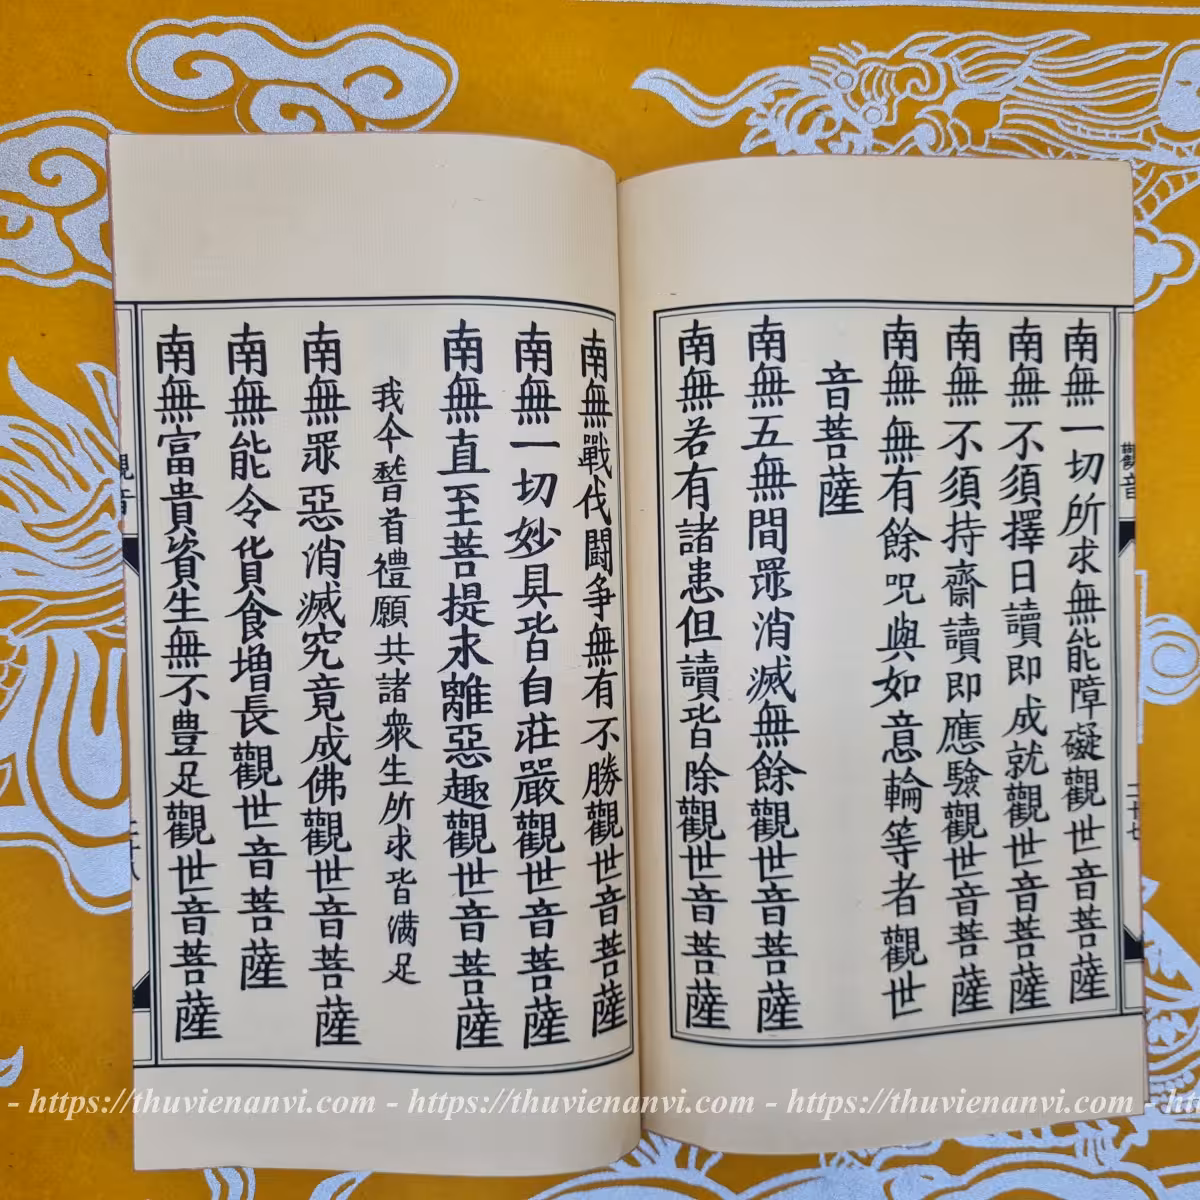 南無一切所求無能障礙觀世音菩薩
南無不須擇日讀即成就觀世音菩薩
南無不須持齋讀即應驗觀世音菩薩
南無無有餘咒與如意輪等者觀世
音菩薩
南無五無間罪消滅無餘觀世音菩薩
南無若有諸患但讀皆除觀世音菩薩
觀音
二十七
南無戰伐鬪爭無有不勝觀世音菩薩
南無一切妙具皆自莊嚴觀世音菩薩
南無直至菩提永離惡趣觀世音菩薩
我今稽首禮願共諸衆生所求皆滿足
南無眾惡消滅究竟成佛觀世音菩薩
南無能令貨食增長觀世音菩薩
南無富貴資生無不豊足觀世音菩薩
- https://thuvienanvi.com - https://thuvienanvi.com - https://thuvienanvi.com -